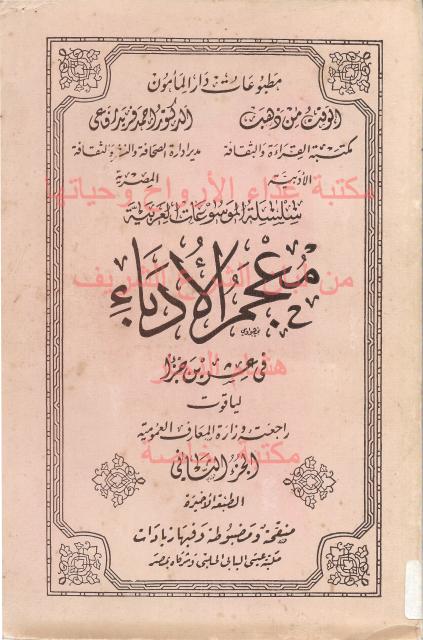 مطبوعات دار المأمون
الوقت من ذهب
الدكتور أحمد فريد رفاعى
مكتبة القراءة والثقافة
مدير إدارة الصحافة والنشر والثقافة
الأدبية
المصرية
مكتبة غذاء الأرواح وحياتها
سلسلة الموسوعات العربية
معجم الأدباء
من لسان الشرع الشريف
فى عشرين جزءا
هشام
لياقوت
راجعته وزارة المعارف العمومية
مكتبة خاصة
الجزء الثانى
الطبعة الأخيرة
منقحة ومضبوطة وفيها زيادات
مكتبة عيسى البابى الحلبى وشركاه بمصر